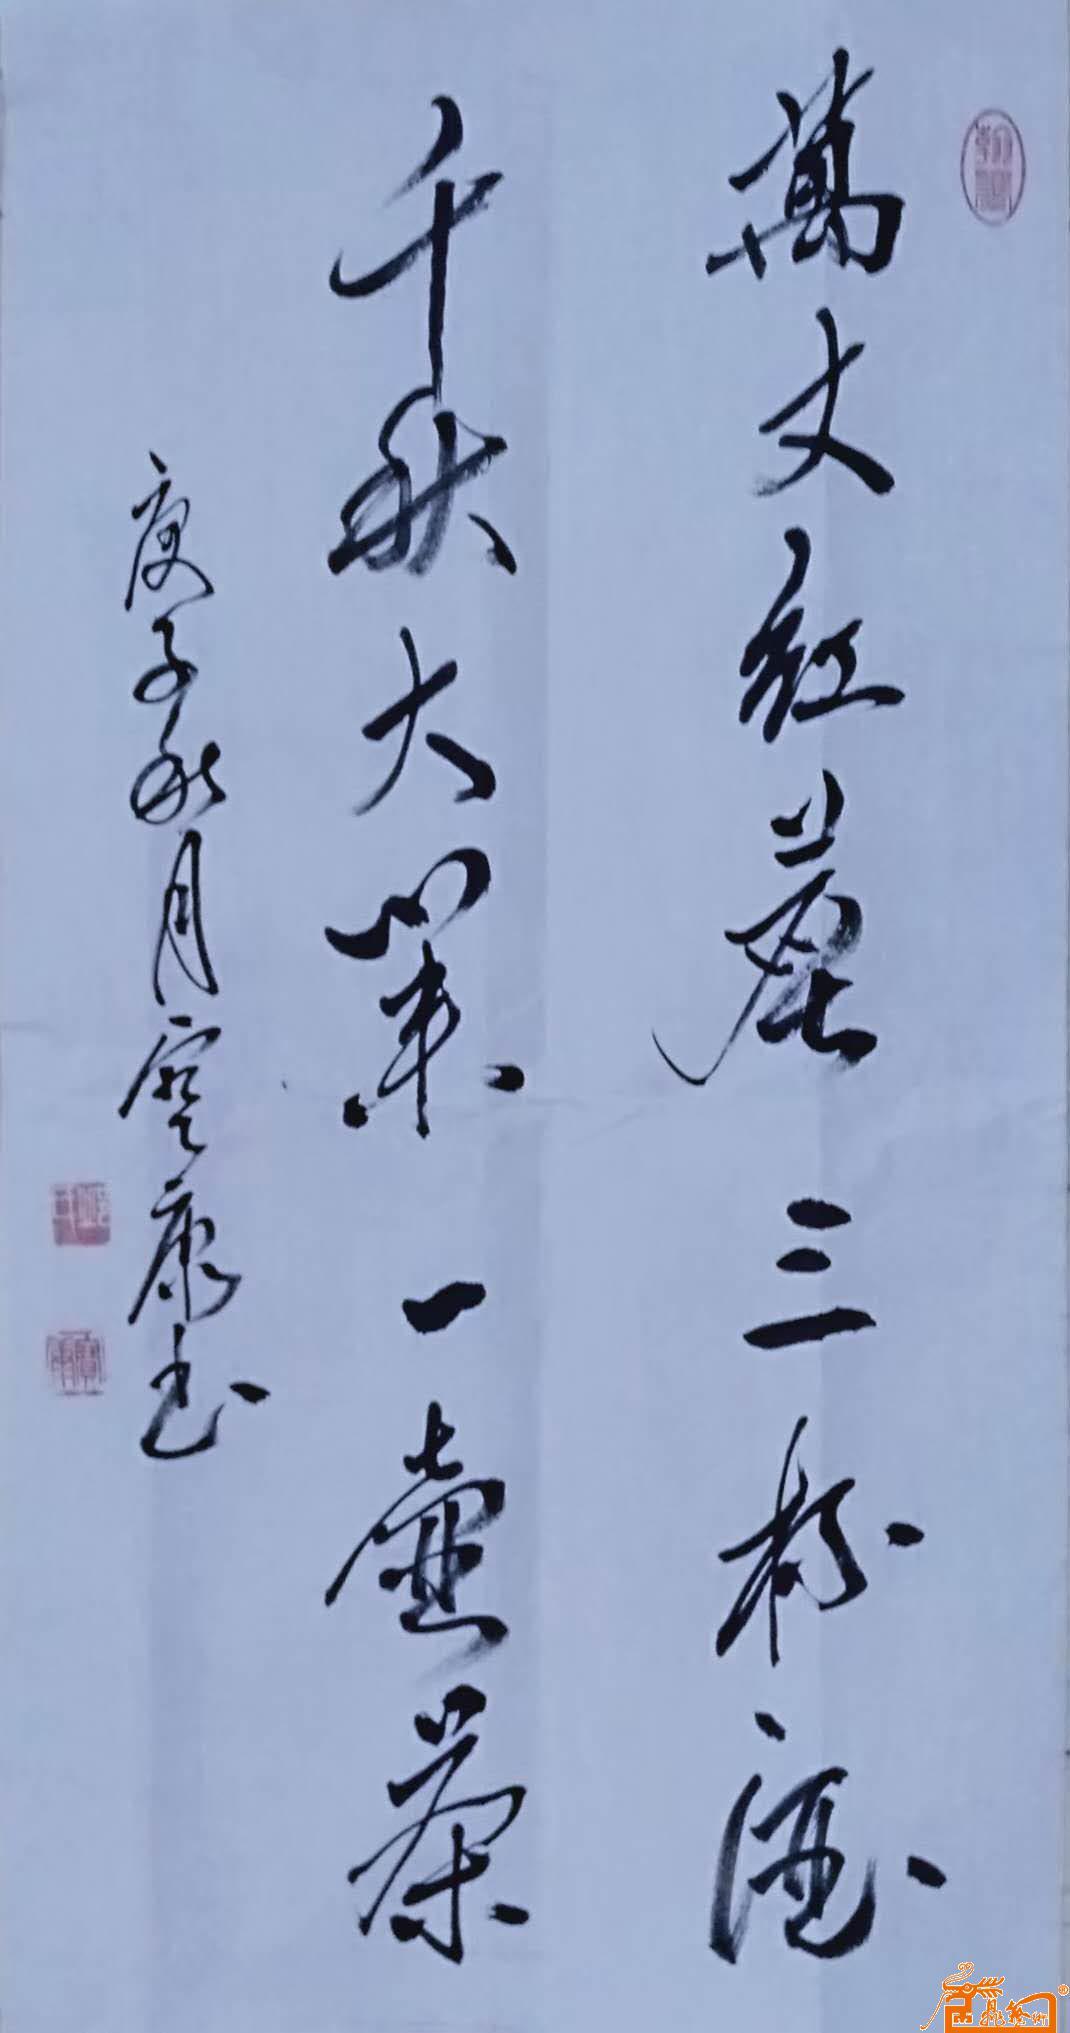 萬丈红塵三杯酒
千秋大業一壺茶
庚子秋月雲康书